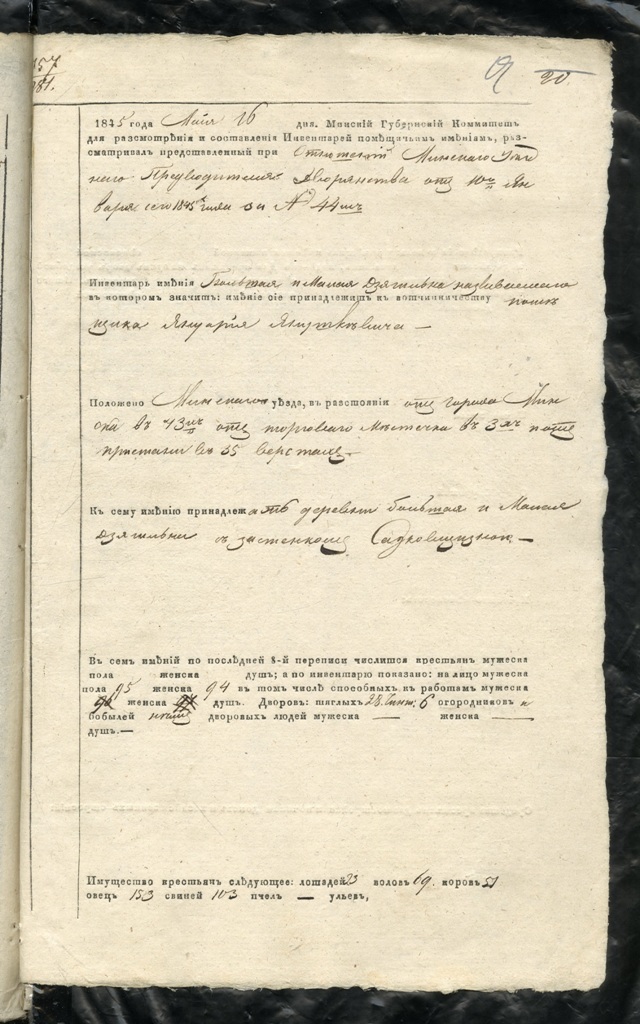 157
181.
20
1845 года Мая 16 дня. Минскій Губернскій Коммитетъ
для разсмотрѣнія и составленія Инвентарей помѣщичьимъ имѣніямъ, раз-
сматривалъ представленный при Минскаго Уѣзд
наго Предводителя Дворянства отъ 10го Ян
варя сего 1845 года за № 44мъ
Инвентарь имѣнія Большая и Малая Дзятельна называемаго
въ которомъ значитъ: имѣніе сіе принадлежитъ къ вотчинничеству помѣ
щика Януарія
Положено Минскаго уѣзда, въ разстояніи отъ города Мин
ска въ 43хъ отъ торговаго Мѣстечка въ 3хъ отъ
пристани въ 35 верстахъ.—
Къ сему имѣнію принадлежатъ деревни Большая и Малая
Дзятельна съ застенкомъ Садковщизною —
Въ семъ имѣній по послѣдней 8-й переписи числится крестьян мужеска
пола женска душъ; а по инвентарю показано: на лицо мужеска
пола 95 женска 94 въ томъ числѣ способныхъ къ работамъ мужеска
женска душъ. Дворовъ: тяглыхъ 28 6 огородников и
бобылей дворовыхъ людей мужеска — женска —
душъ.—
Имущество крестьянъ слѣдующее: лошадей 23 воловъ 69. коровъ 51
овецъ 153 свиней 103 пчелъ — ульевъ,